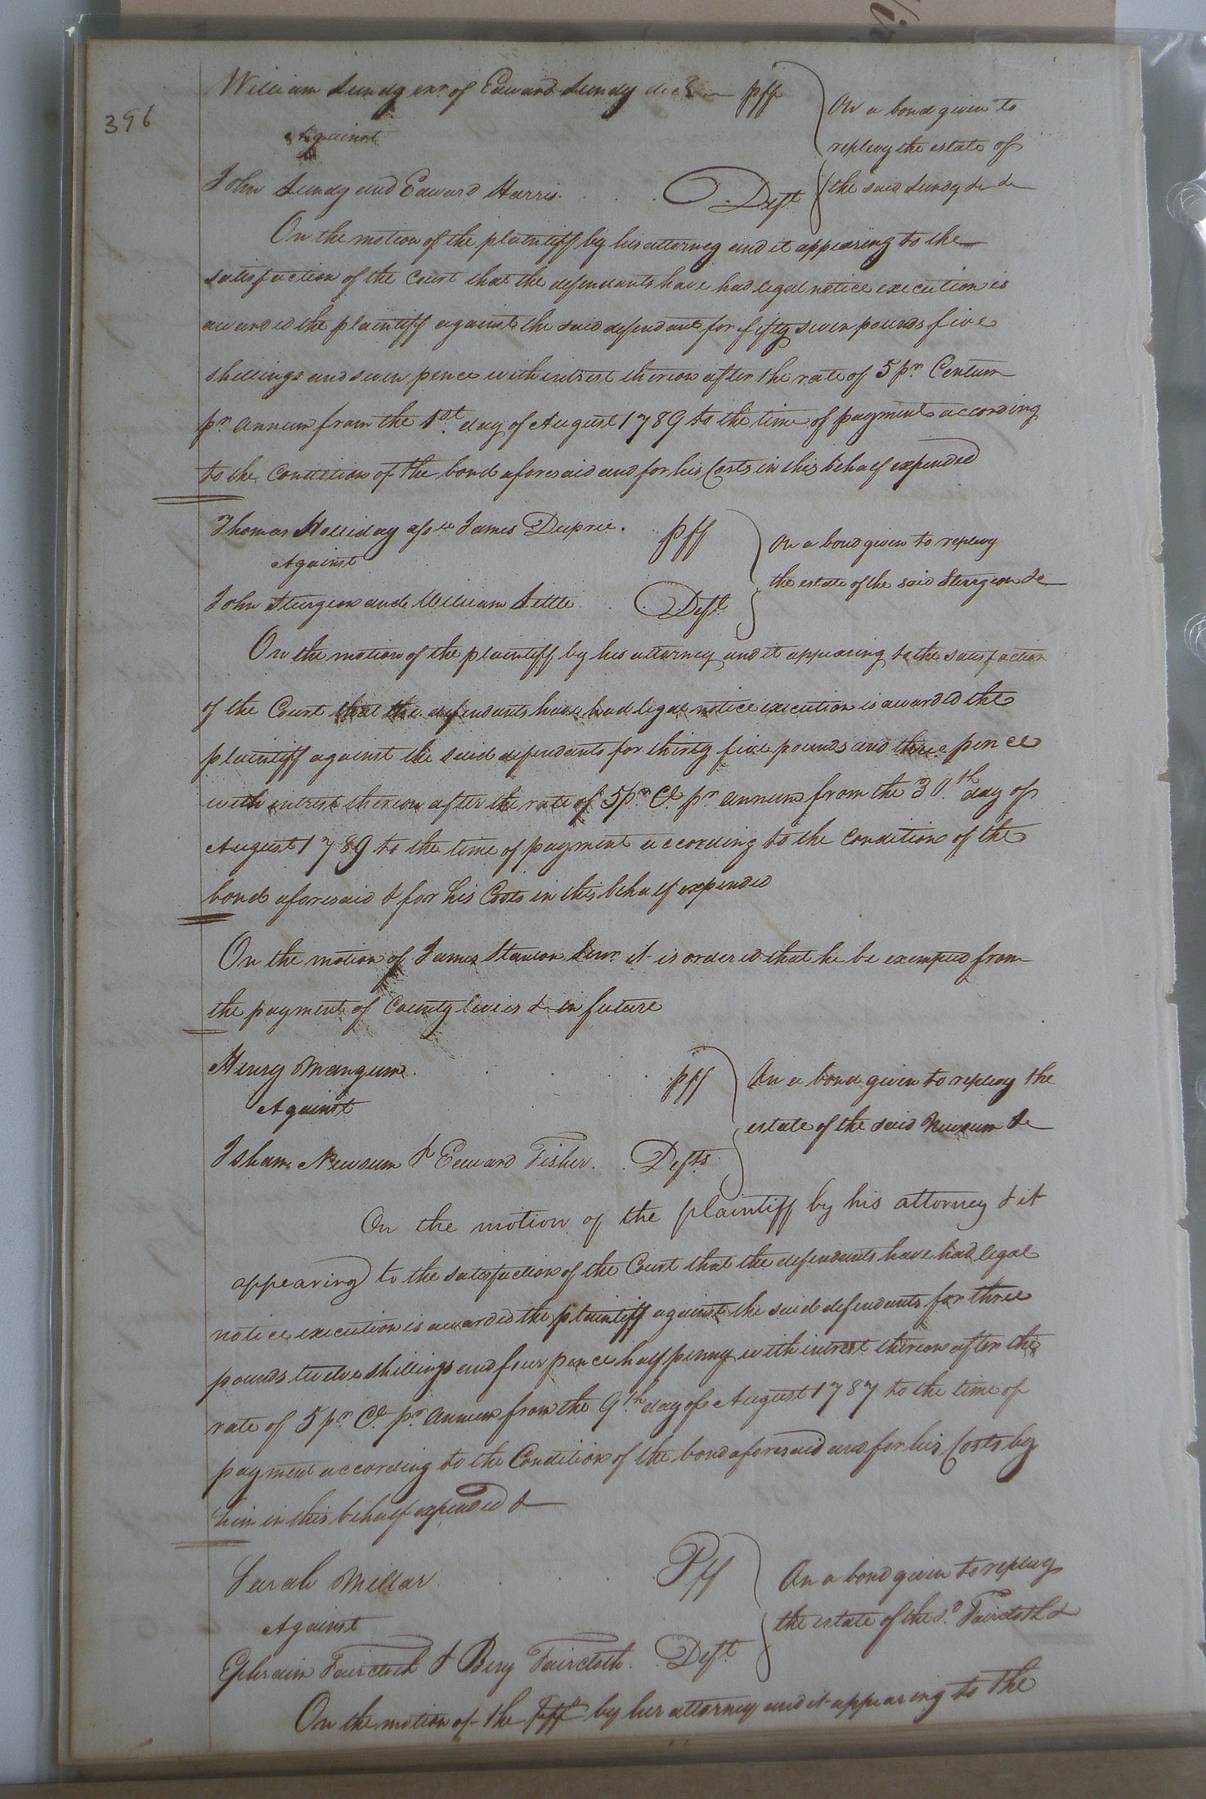 396
William Lundy exr. of Edward Lundy decd — pff
Against
On a bond given to
replevy the estate of
the said Lundy &c &c
John Lundy and Edward Harris. Deft
On the motion of the plaintiff by his attorney and it appearing to the
satisfaction of the Court that the defendants have had legal notice execution is
awarded the plaintiff against the said defendants for fifty seven pounds five
shillings and seven pence with interest thereon after the rate of 5 pr. Centum
pr. annum from the 1st. day of August 1789 to the time of payment according
to the Condition of the bond aforesaid and for his Costs in this behalf expended
Thomas Holliday asse. James Dupree. pff
Against
On a bond given to replevy
the estate of the said Sturgeon &c
John Sturgeon and William Settle Deft.
On the motion of the plaintiff by his attorney and it appearing to the satisfaction
of the Court that the defendants have had legal notice execution is awarded the
plaintiff against the said defendants for thirty five pounds and three pence
with interest thereon after the rate of 5 pr. Ct. pr. annum from the 30th. day of
August 1789 to the time of payment according to the Condition of the
bond aforesaid & for his Costs in this behalf expended
On the motion of James Stanton Senr. it is ordered that he be exempted from
the payment of County levies & in future
Henry Mangum. pff
Against
On a bond given to replevy the
estate of the said Newsum &c
Isham Newsum & Edward Fisher. Defts.
On the motion of the plaintiff by his attorney & it
appearing to the satisfaction of the Court that the defendants have had legal
notice execution is awarded the plaintiff against the said defendants for three
pounds twelve shillings and four pence half penny with interest thereon after the
rate of 5 pr. Ct. pr. annum from the 9th. day of August 1787 to the time of
payment according to the Condition of the bond aforesaid and for his Costs by
him in this behalf expended &
Sarah Millar Pff
Against
On a bond given to replevy
the estate of the sd. Faircloth &
Ephraim Faircloth & Beny Faircloth. Deft.
On the motion of the pff by her attorney and it appearing to the